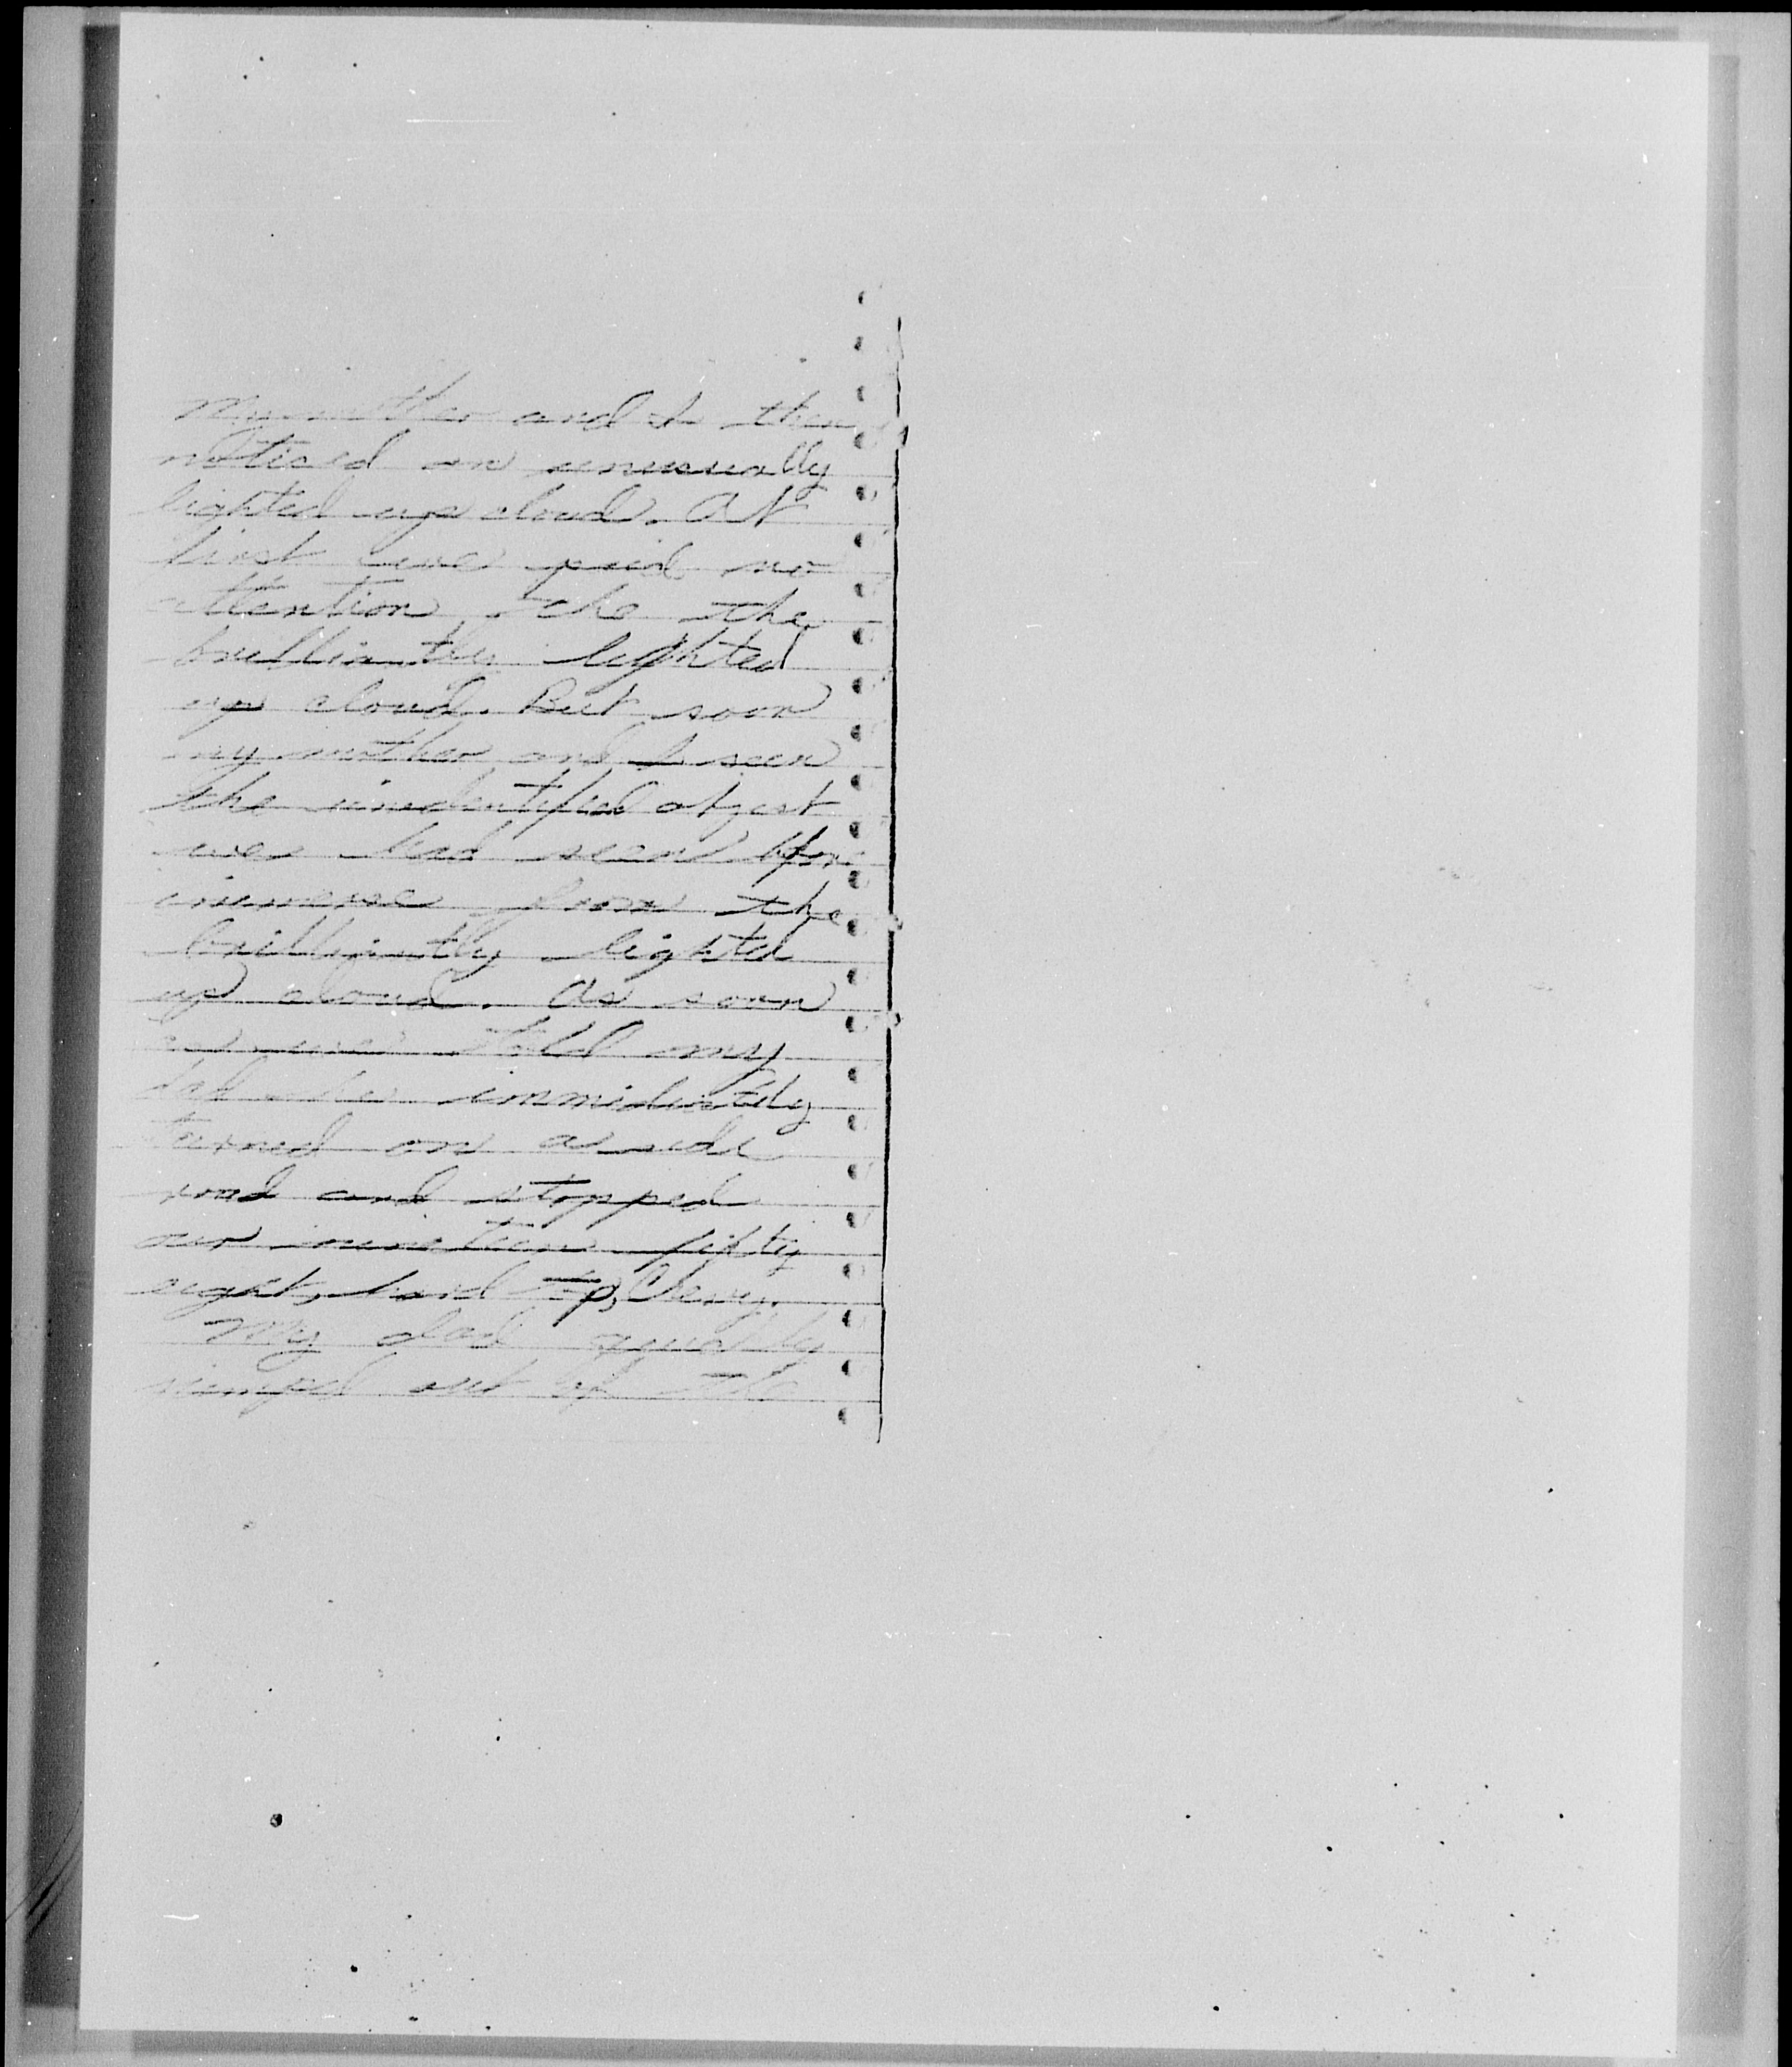 My mother and I then
noticed an unusually
lighted up cloud. At
first we paid no
attention the the
brilliantly lighted
up cloud. But soon
my mother and I seen
the unidentified object
we had seen before
immerse from the
brilliantly lighted
up cloud. As soon
as we told my
dad he immidiatly
turned on a side
road and stopped
our nineteen fifty
eight, hard top, Chevy.
My dad quickly
jumped out of the